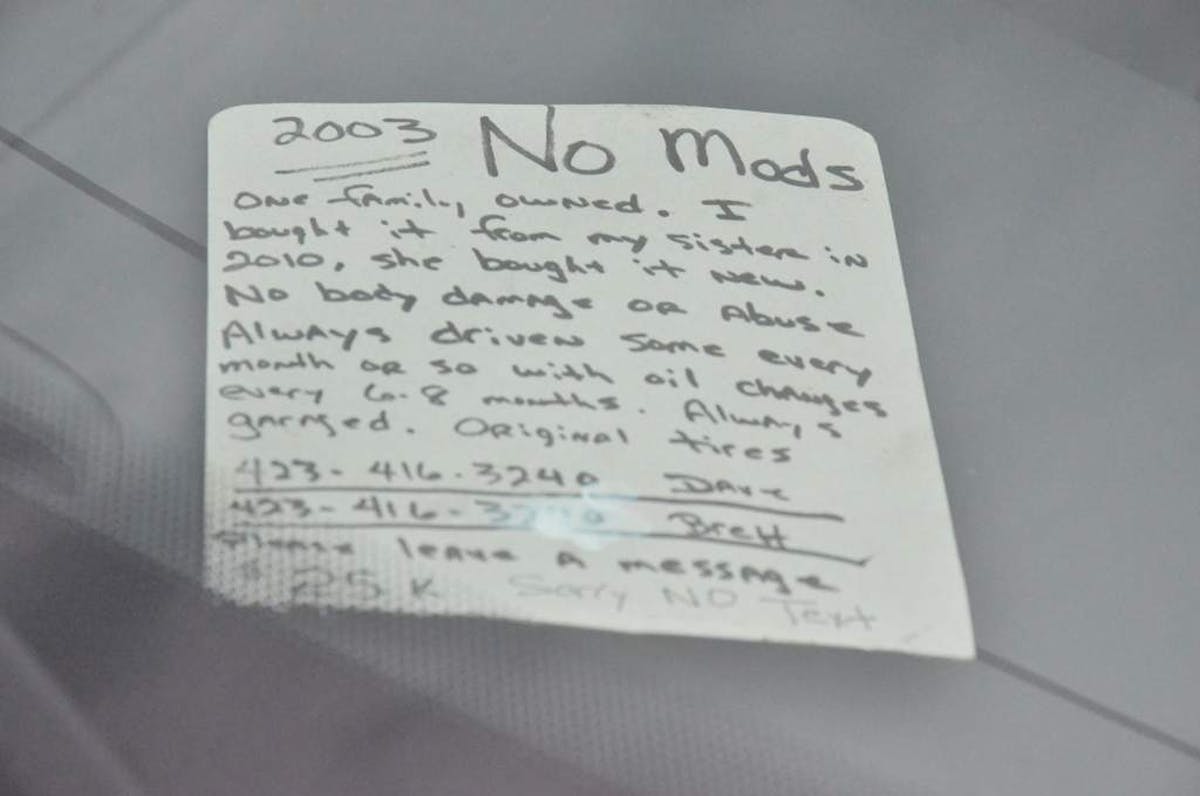 2003 No Mods
One family owned. I
bought it from my sister in
2010, she bought it new.
No body damage or Abuse
Always driven some every
month or so with oil changes
every 6-8 months. Always
garaged. Original tires
423-416-3240 Dave
423-416- Brett
Please leave A message
$25K Sorry NO Text